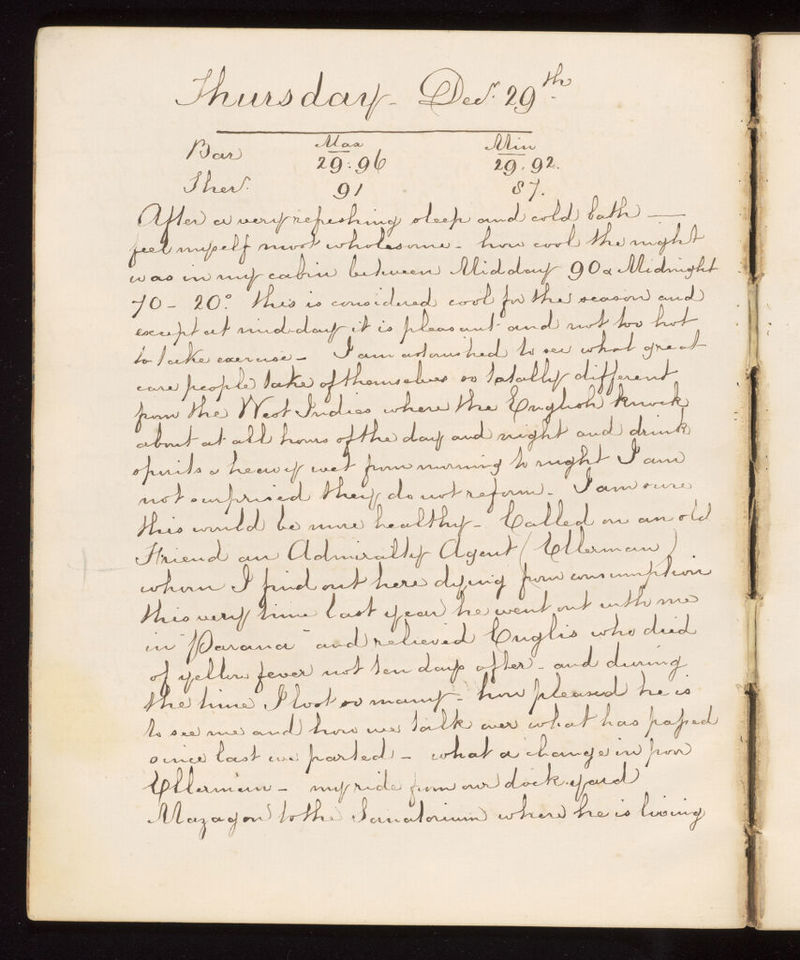 Thursday - Decr. 29th
Max Min
Bar 29.96 29.92.
Ther. 91 87.
After a very refreshing sleep and cold bath —
feel myself most wholesome - how cool the night
was in my cabin between Midday 90 & Midnight
70 - 20° this is considered cool for the season and
except at mid-day it is pleasant and not too hot
to take exercise - I am astonished to see what great
care people take of themselves so totally different
from the West Indies where the English knock
about at all hours of the day and night and drink
spirits & heavy wet from morning to night I am
not surprised they do not reform - I am sure
this would be more healthy - Called on an old
Friend an Admiralty Agent (Ellerman)
whom I find out here dying from consumption
this very time last year he went out with me
in "Parana" and relieved Englis who died
of yellow fever not ten days after - and during
the time I lost so many - how pleased he is
to see me and how we talk over what has passed
since last we parted - what a change in poor
Ellerman - my ride from our dock yard
Mazagon to the Sanatorium where he is living